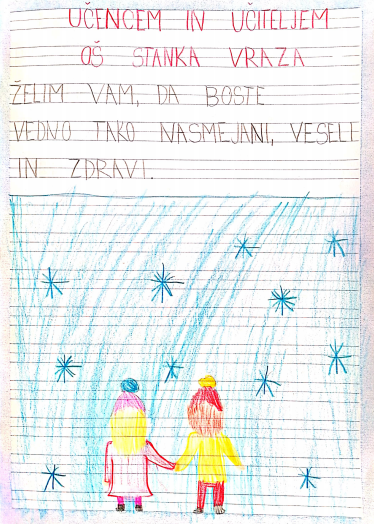 UČENCEM IN UČITELJEM
OŠ STANKA VRAZA
ŽELIM VAM, DA BOSTE
VEDNO TAKO NASMEJANI, VESELI
IN ZDRAVI.